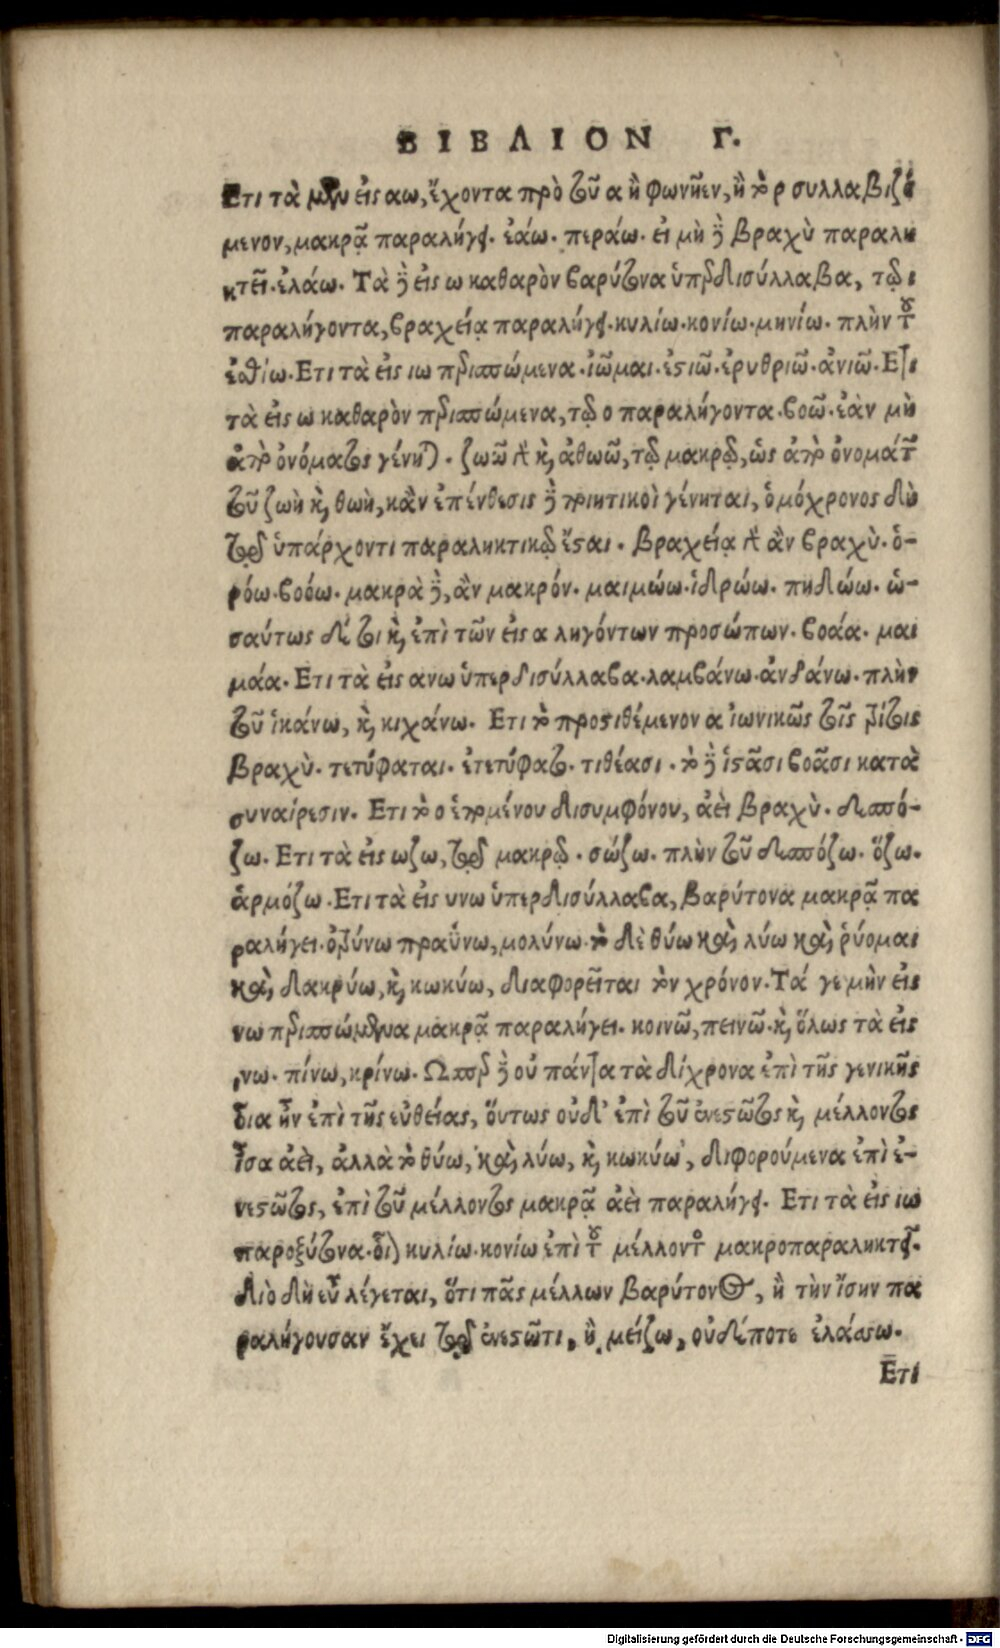 ΒΙΒΛΙΟΝ Γ.
Ετι τὰ μὲν εἰς αω, ἔχοντα πρὸ τοῦ α ἢ φωνῆεν, ἢ τὸ ρ συλλαβιζό
μενον, μακρᾷ παραλήγει. ἐάω. περάω. εἰ μὴ δὲ βραχὺ παραλη
κτεῖ. ἐλάω. Τὰ δὲ εἰς ω καθαρὸν βαρύτονα ὑπερδισύλλαβα, τῷ ι
παραλήγοντα, βραχείᾳ παραλήγει. κυλίω. κονίω. μηνίω. πλὴν τοῦ
ἐσθίω. Ετι τὰ εἰς ιω περισπώμενα. ἰῶμαι. ἑστιῶ. ἐρυθριῶ. ἀνιῶ. Ετι
τὰ εἰς ω καθαρὸν περισπώμενα, τῷ ο παραλήγοντα. βοῶ. ἐὰν μὴ
ἀπὸ ὀνόματος γένηται. ζωῶ δὲ καὶ ἀθωῶ, τῷ μακρῷ, ὡς ἀπὸ ὀνομάτων
τοῦ ζωὴ καὶ θωὴ, κἂν ἐπένθεσις δὲ ποιητικοὶ γένηται, ὁμόχρονος δὴ
τῷ ὑπάρχοντι παραληκτικῷ ἔσται. βραχείᾳ δὲ ἂν βραχὺ. ὁ-
ρόω. βοόω. μακρὰ δὲ, ἂν μακρόν. μαιμώω. ἱδρώω. πηδώω. ὡ-
σαύτως δέ τι καὶ ἐπὶ τῶν εἰς α ληγόντων προσώπων. βοάα. μαι
μάα. Ετι τὰ εἰς ανω ὑπερδισύλλαβα. λαμβάνω. ἁνδάνω. πλὴν
τοῦ ἱκάνω, καὶ κιχάνω. Ετι τὸ προστιθέμενον α ἰωνικῶς τοῖς τρίτοις
βραχὺ. τετύφαται. ἐτετύφατο. τιθέασι. τὸ δὲ ἱστᾶσι βοᾶσι κατὰ
συναίρεσιν. Ετι τὸ ο ἑπομένου δισυμφόνου, ἀεὶ βραχὺ. δεσπό-
ζω. Ετι τὰ εἰς ωζω, τῷ μακρῷ. σώζω. πλὴν τοῦ δεσπόζω. ὄζω.
ἁρμόζω. Ετι τὰ εἰς υνω ὑπερδισύλλαβα, βαρύτονα μακρᾷ πα
ραλήγει. ὀξύνω πραΰνω, μολύνω. τὸ δὲ θύω καὶ λύω καὶ ῥύομαι
καὶ δακρύω, καὶ κωκύω, διαφορεῖται τὸν χρόνον. Τά γε μὴν εἰς
νω περισπώμενα μακρᾷ παραλήγει. κοινῶ, πεινῶ. καὶ ὅλως τὰ εἰς
ινω. πίνω, κρίνω. Ωσπερ δὲ οὐ πάντα τὰ δίχρονα ἐπὶ τῆς γενικῆς
δια ἦν ἐπὶ τῆς εὐθείας, οὕτως οὐδ' ἐπὶ τοῦ ἐνεστῶτος καὶ μέλλοντος
ἴσα ἀεὶ, ἀλλὰ τὸ θύω, καὶ λύω, καὶ κωκύω, διφορούμενα ἐπὶ ἐ-
νεστῶτος, ἐπὶ τοῦ μέλλοντος μακρᾷ ἀεὶ παραλήγει. Ετι τὰ εἰς ιω
παροξύτονα. οἷον κυλίω. κονίω ἐπὶ τοῦ μέλλοντος μακροπαραληκτεῖ.
Διὸ δὴ εὖ λέγεται, ὅτι πᾶς μέλλων βαρύτονος, ἢ τὴν ἴσην πα
ραλήγουσαν ἔχει τῷ ἐνεστῶτι, ἢ μείζω, οὐδέποτε ἐλάσσω.
Ετι
Digitalisierung gefördert durch die Deutsche Forschungsgemeinschaft - DFG